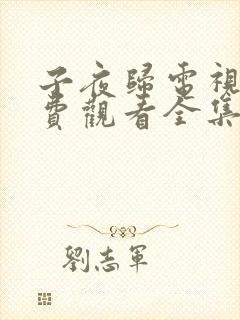 子夜歸電視
費觀看全集
劉志軍